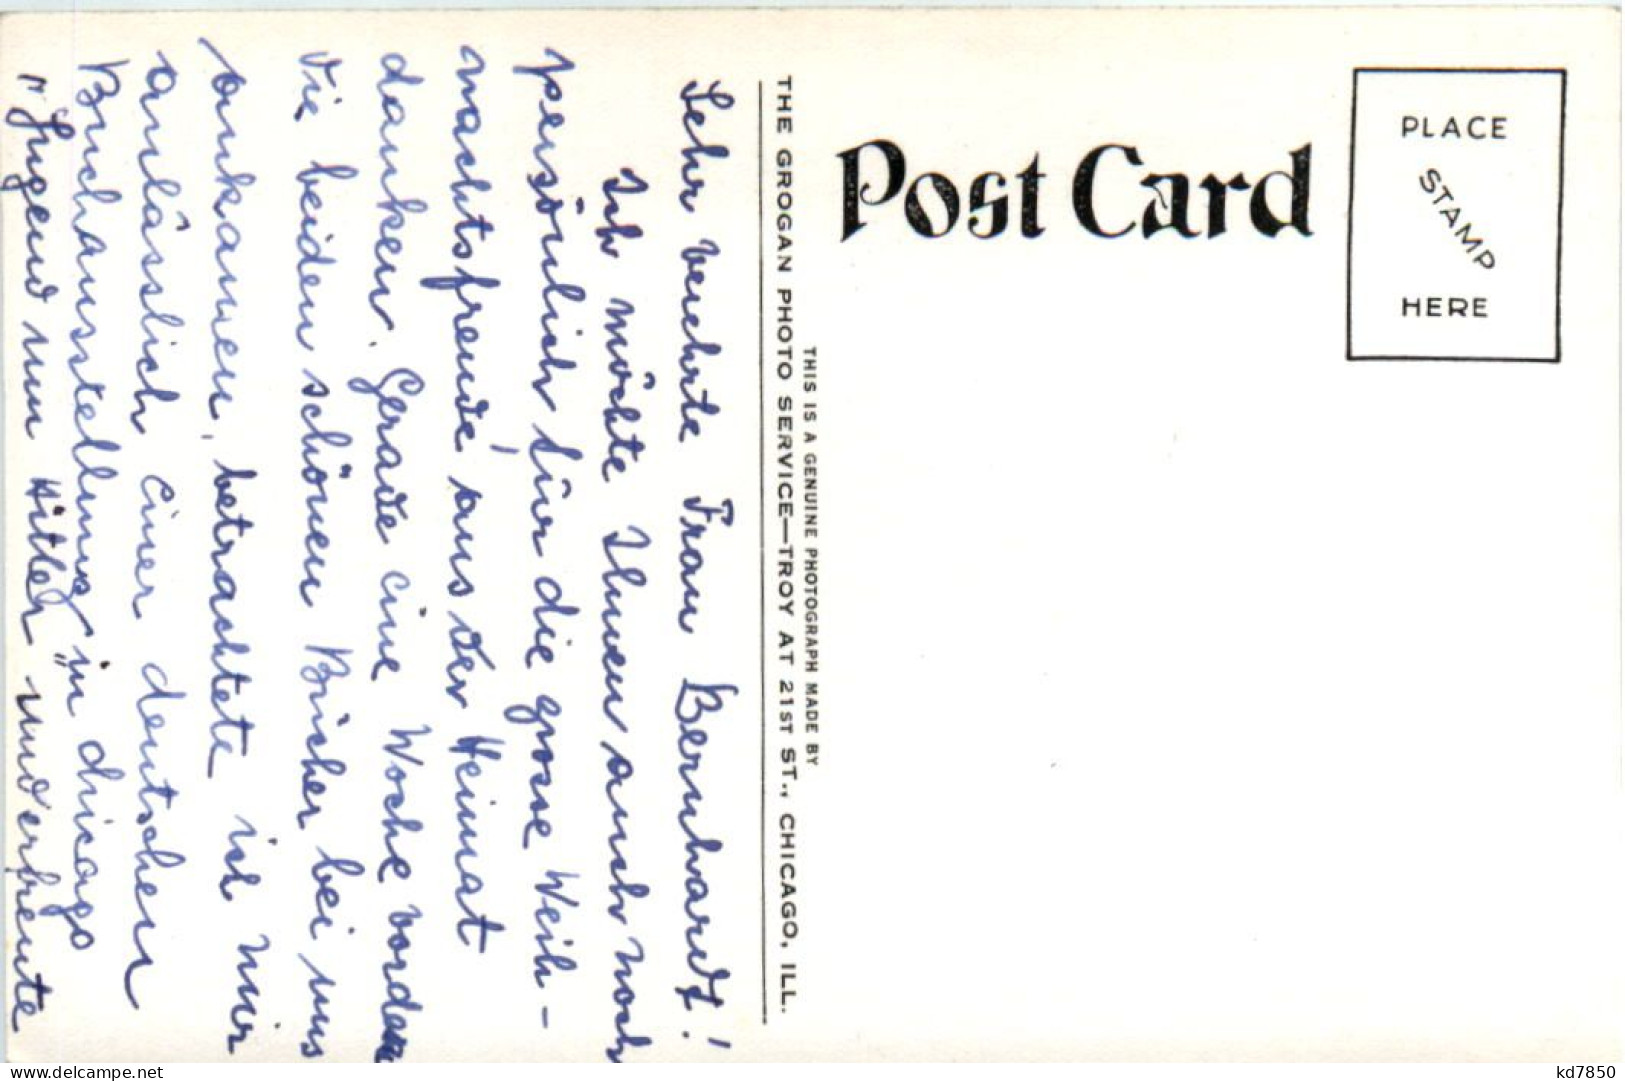 Sehr verehrte Frau Bernhardt!
Ich möchte Ihnen auch noch
persönlich für die grosse Weih-
nachtsfreude aus der Heimat
danken. Gerade eine Woche vordem
die beiden schönen Bücher bei uns
ankamen, betrachtete ich mir
anlässlich einer deutschen
Buchausstellung in Chicago
"Jugend um Hitler" und erfreute
THE GROGAN PHOTO SERVICE—TROY AT 21ST ST., CHICAGO, ILL.
THIS IS A GENUINE PHOTOGRAPH MADE BY
Post Card
PLACE
STAMP
HERE
delcampe.net
kd7850